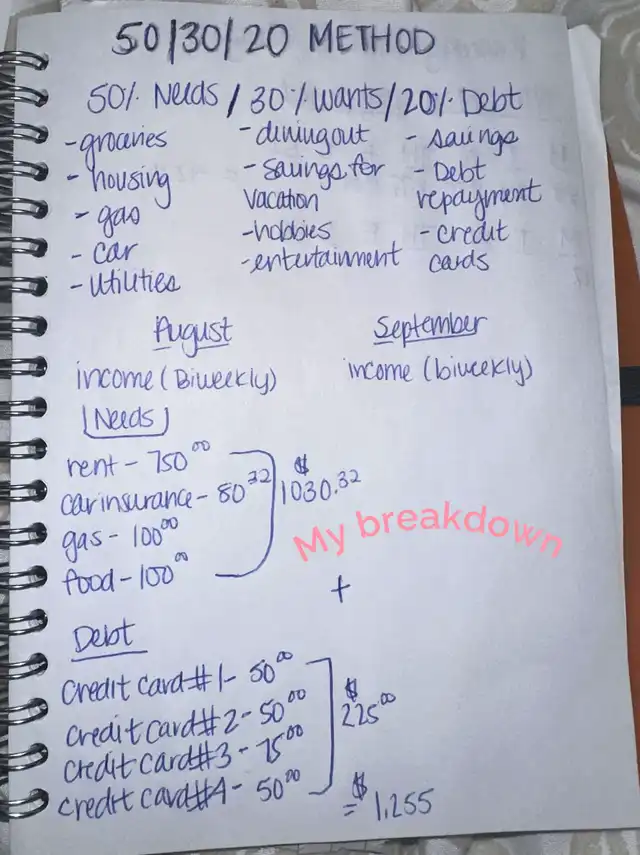 50/30/20 METHOD
50% Needs / 30% wants / 20% Debt
- groceries
- housing
- gas
- car
- utilities
- dining out
- savings for
vacation
- hobbies
- entertainment
- savings
- Debt
repayment
- credit
cards
August
income (Biweekly)
Needs
rent - 750.00
car insurance - 80.32
gas - 100.00
food - 100.00
$
1030.32
+
Debt
Credit card #1 - 50.00
Credit card #2 - 50.00
Credit card #3 - 75.00
Credit card #4 - 50.00
$
225.00
= $1,255
September
income (biweekly)
My breakdown